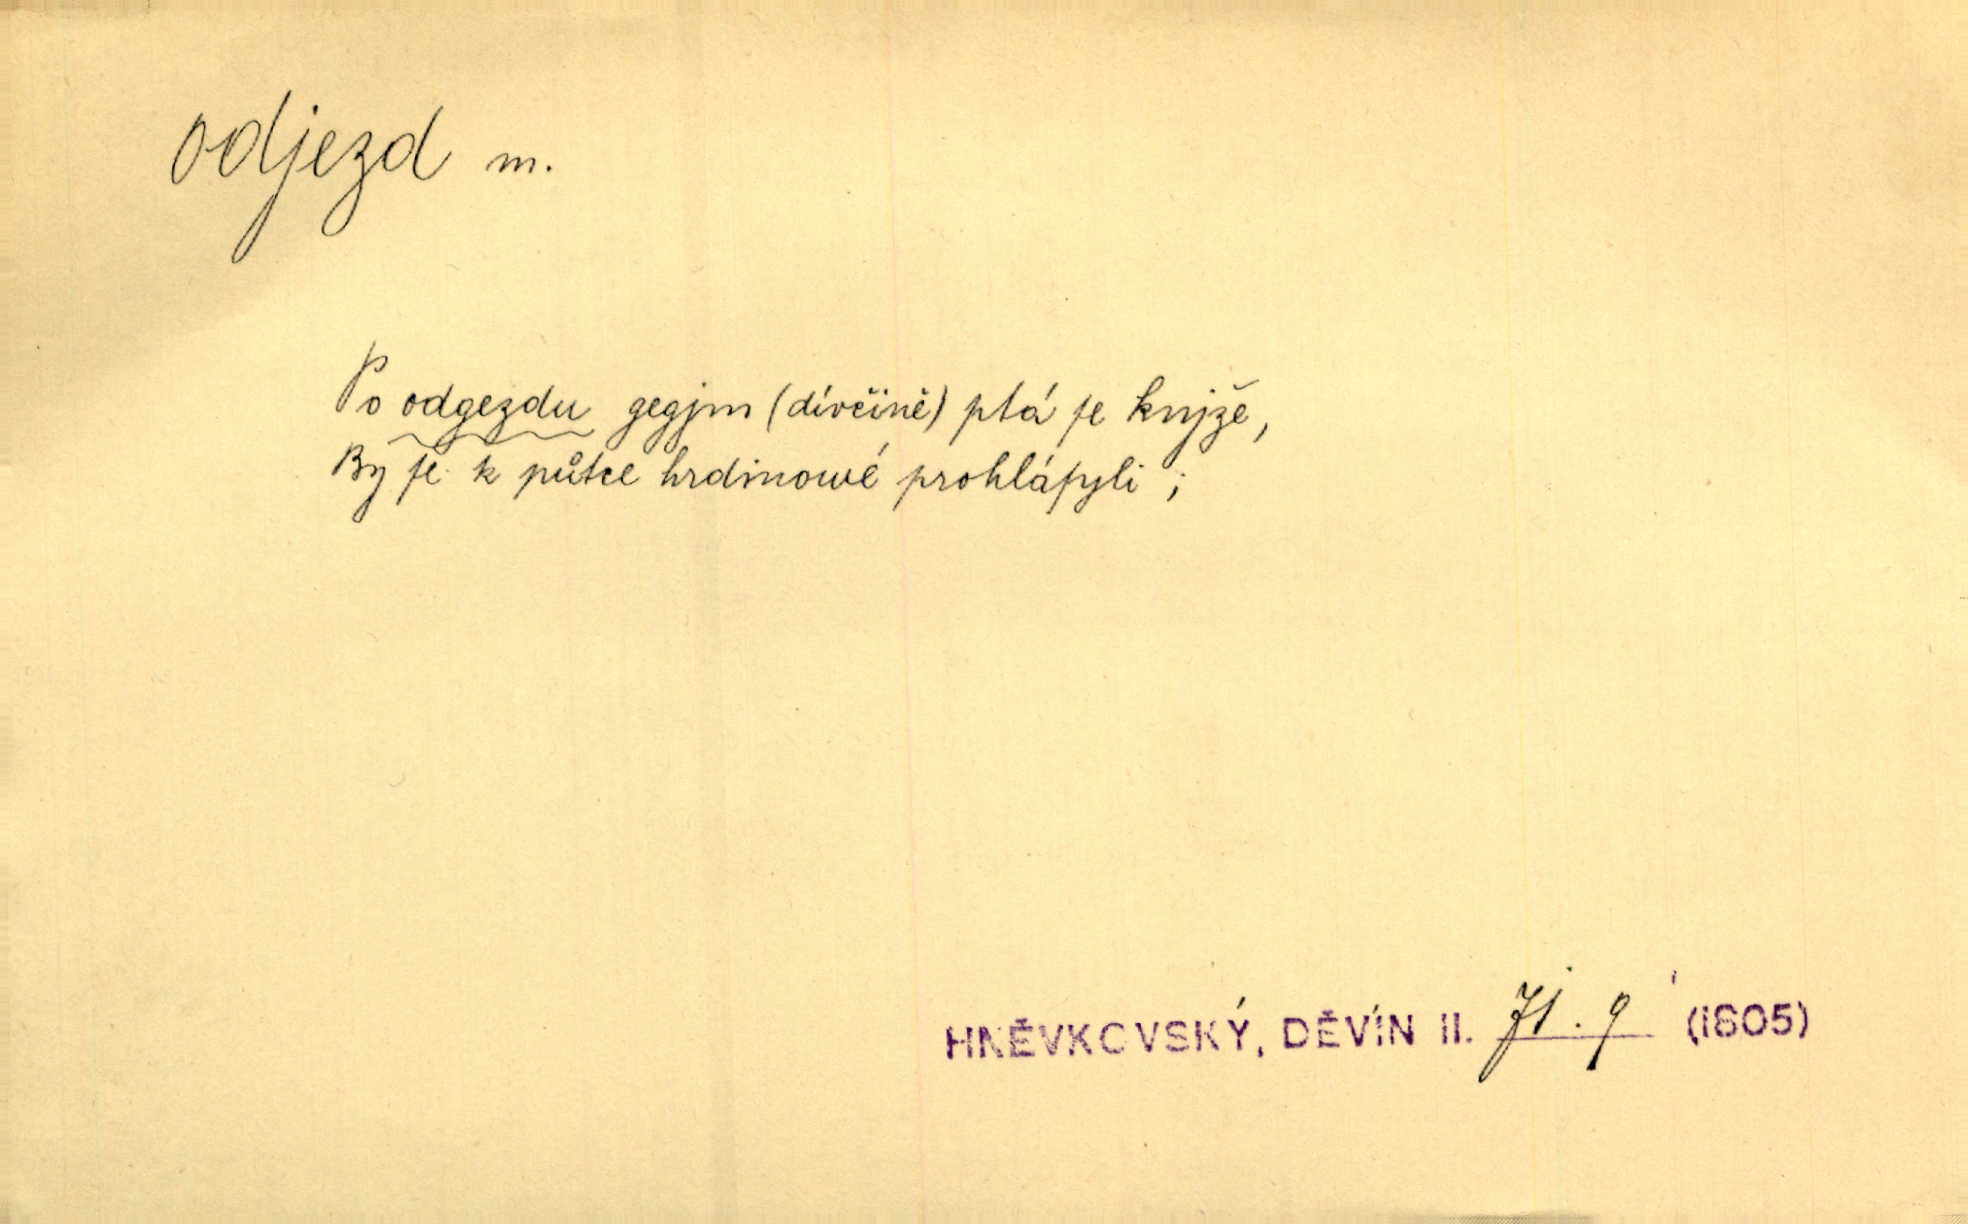 odjezd m.
Po odgezdu gegjm (dívčině) ptá ſe knjže,
By ſe k půtce hrdinowé prohláſyli ;
HNĚVKOVSKÝ, DĚVÍN II. 71.9 (1805)